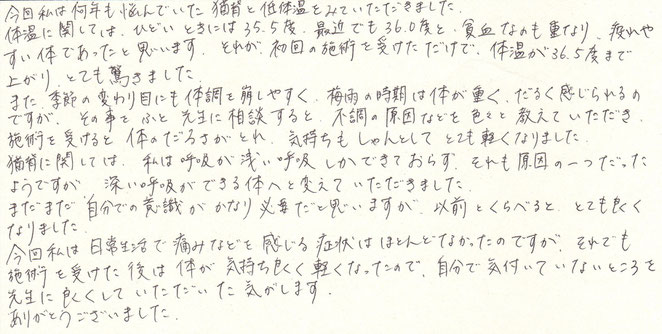 今回私は何年も悩んでいた猫背と低体温をみていただきました.
体温に関しては、ひどいときには35.5度、最近でも36.0度と、貧血なのも重なり、疲れや
すい体であったと思います. それが初回の施術を受けただけで、体温が36.5度まで
上がり、とても驚きました.
また、季節の変わり目にも体調を崩しやすく、梅雨の時期は体が重く、だるく感じられるの
ですが、その事をふと先生に相談すると、不調の原因などを色々と教えていただき、
施術を受けると体のだるさがとれ、気持ちもしゃんとしてとても軽くなりました.
猫背に関しては、私は呼吸が浅い呼吸しかできておらず、それも原因の一つだった
ようですが、深い呼吸ができる体へと変えていただきました.
まだまだ自分での意識がかなり必要だと思いますが、以前とくらべると、とても良く
なりました.
今回私は日常生活で痛みなどを感じる症状はほとんどなかったのですが、それでも
施術を受けた後は体が気持ち良く軽くなったので、自分で気付いていないところを
先生に良くしていただいた気がします.
ありがとうございました.